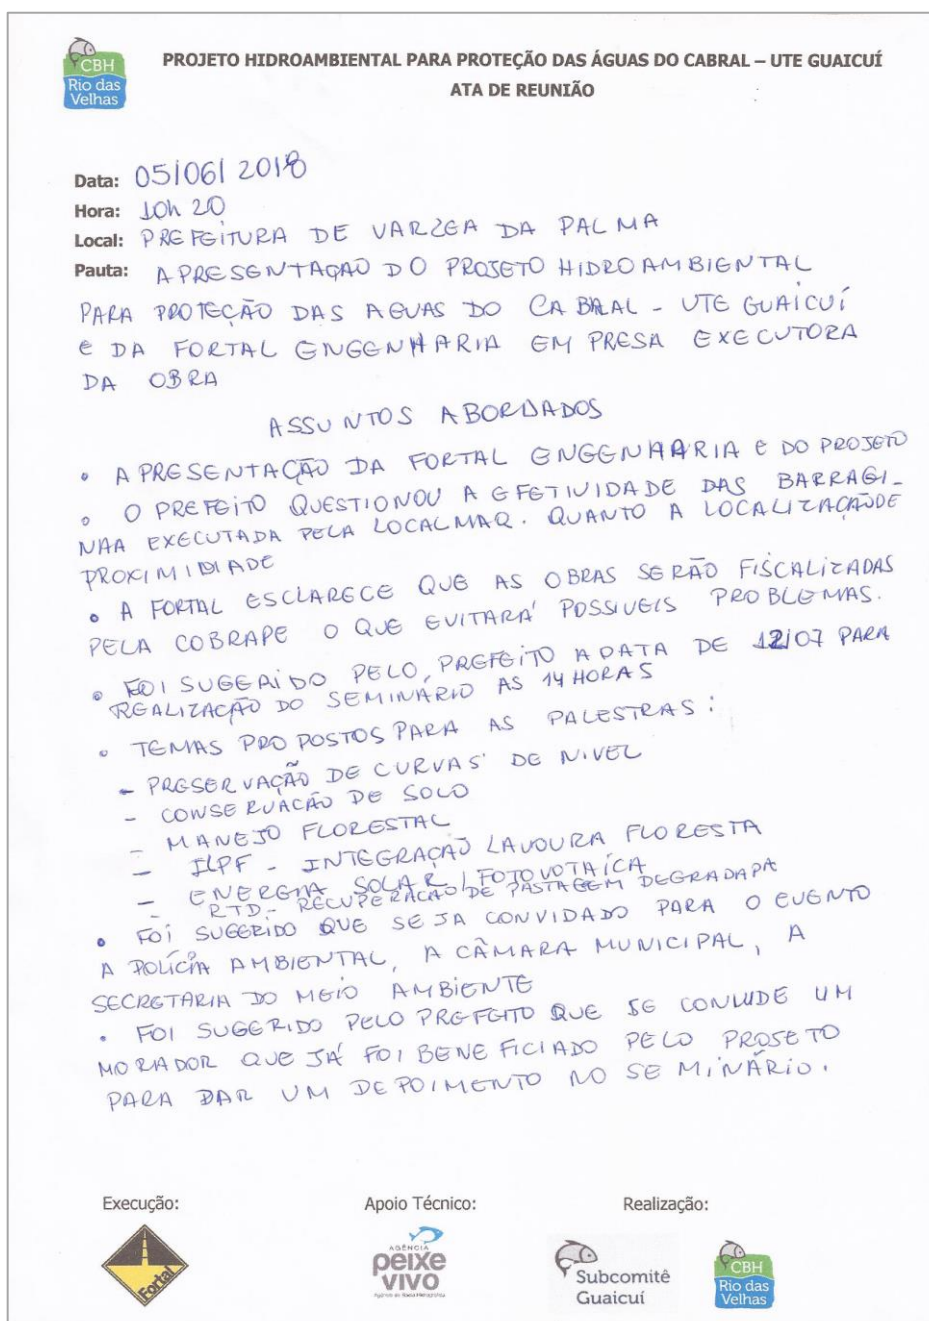 CBH
Rio das
Velhas
PROJETO HIDROAMBIENTAL PARA PROTEÇÃO DAS ÁGUAS DO CABRAL – UTE GUAICUÍ
ATA DE REUNIÃO
Data: 05/06/2018
Hora: 10h20
Local: PREFEITURA DE VARZEA DA PALMA
Pauta: APRESENTAÇAO DO PROJETO HIDROAMBIENTAL
PARA PROTEÇÃO DAS AGUAS DO CABRAL - UTE GUAICUÍ
E DA FORTAL ENGENHARIA EMPRESA EXECUTORA
DA OBRA
ASSUNTOS ABORDADOS
• APRESENTAÇÃO DA FORTAL ENGENHARIA E DO PROJETO
• O PREFEITO QUESTIONOU A EFETIVIDADE DAS BARRAGI-
NHA EXECUTADA PELA LOCALMAQ. QUANTO A LOCALIZAÇÃO DE
PROXIMIDIADE
• A FORTAL ESCLARECE QUE AS OBRAS SERÃO FISCALIZADAS
PELA COBRAPE O QUE EVITARÁ POSSIVEIS PROBLEMAS.
• FOI SUGERIDO PELO PREFEITO A DATA DE 12/07 PARA
REALIZAÇÃO DO SEMINÁRIO AS 14 HORAS
• TEMAS PROPOSTOS PARA AS PALESTRAS:
- PRESERVAÇÃO DE CURVAS DE NIVEL
- CONSERVACÃO DE SOLO
- MANEJO FLORESTAL
- ILPF - INTEGRAÇAÕ LAVOURA FLORESTA
- ENERGIA SOLAR / FOTOVOTAÍCA
- RTD.- RECUPERACAO DE PASTAGEM DEGRADADA
• FOI SUGERIDO QUE SEJA CONVIDADO PARA O EVENTO
A POLÍCIA AMBIENTAL, A CÂMARA MUNICIPAL, A
SECRETARIA DO MEIO AMBIENTE
• FOI SUGERIDO PELO PREFEITO QUE SE CONVIDE UM
MORADOR QUE JÁ FOI BENEFICIADO PELO PROJETO
PARA DAR UM DEPOIMENTO NO SEMINÁRIO.
Execução: Apoio Técnico: Realização:
Fortal
AGÊNCIA
peixe
VIVO
Subcomitê
Guaicuí
CBH
Rio das
Velhas